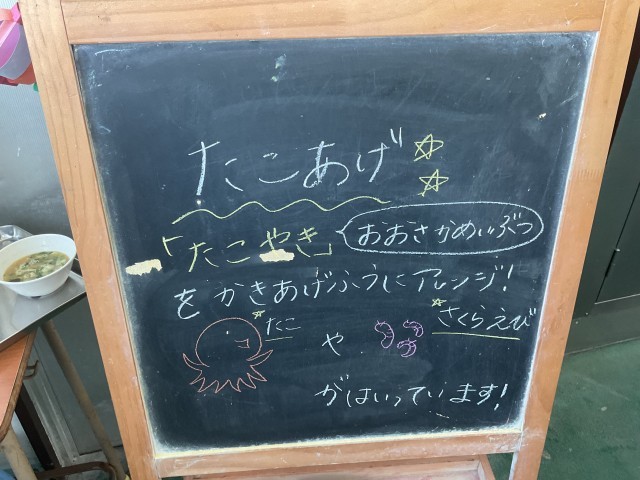 たこあげ
「たこやき」 おおさかめいぶつ
をかきあげふうにアレンジ!
たこ や さくらえび
がはいっています!